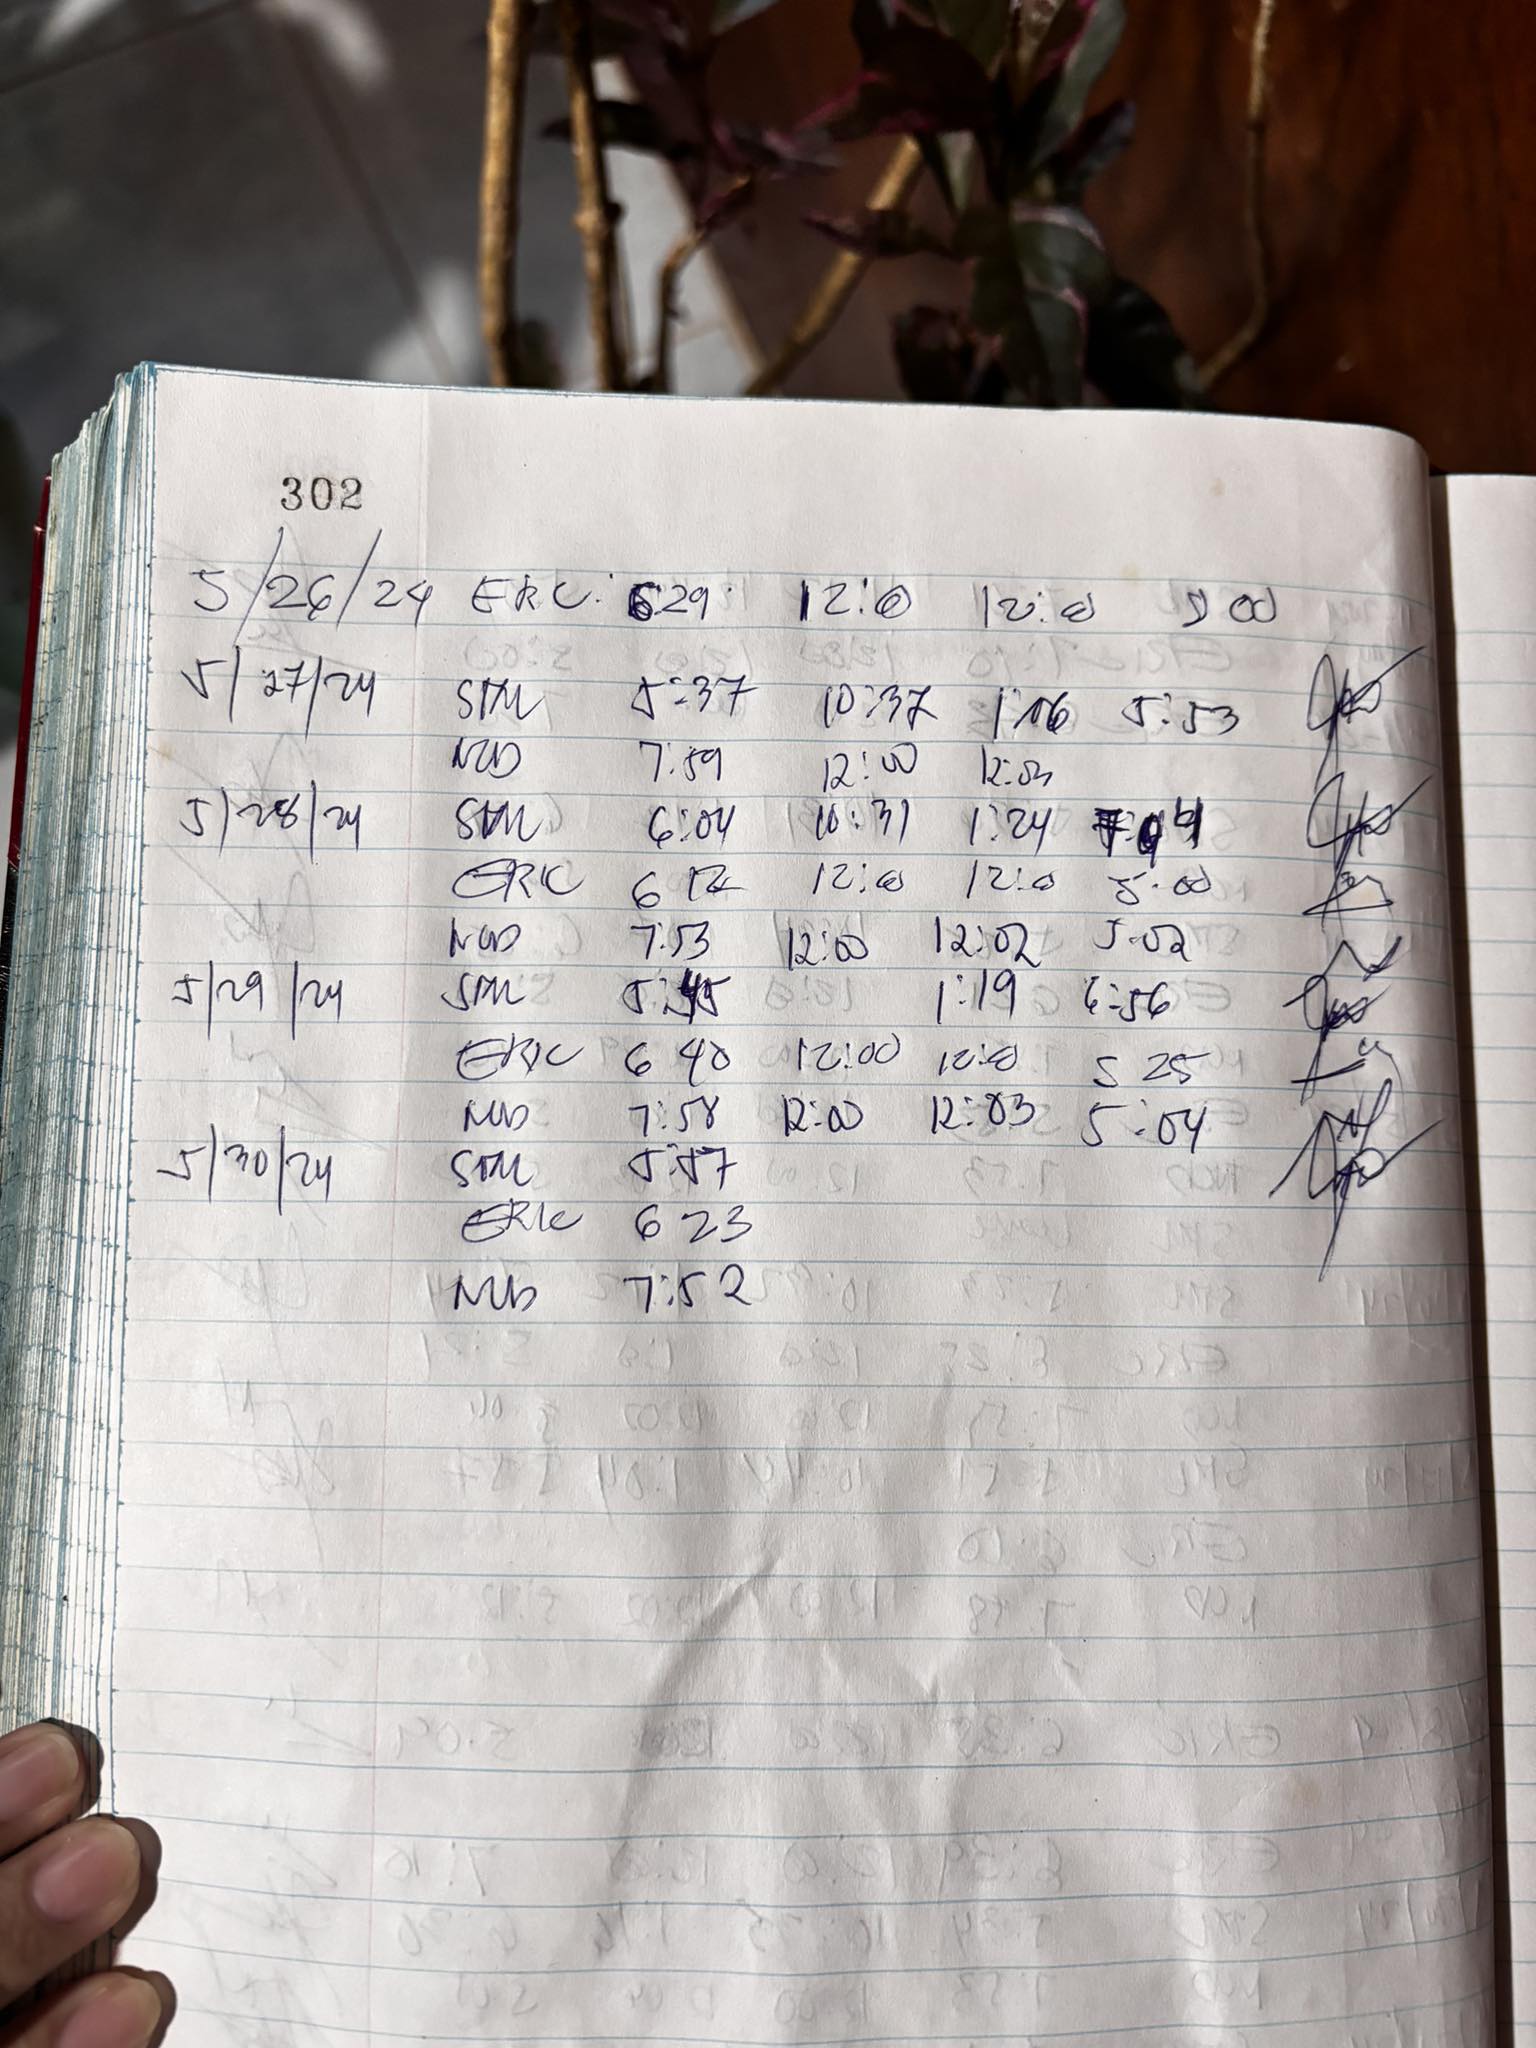 302
5/26/24 ERIC 6:29 12:00 12:00 5 00
5/27/24 SML 5:37 10:37 1:06 5:53
NCD 7:59 12:00 12:03
5/28/24 SML 6:04 10:31 1:24
ERIC 6 12:00 12:00 5:00
NCD 7:53 12:00 12:02 5:02
5/29/24 SML 5:45 1:19 6:56
ERIC 6 40 12:00 12:00 5 25
NCD 7:58 12:00 12:03 5:04
5/30/24 SML 5:57
ERIC 6 23
NCD 7:52